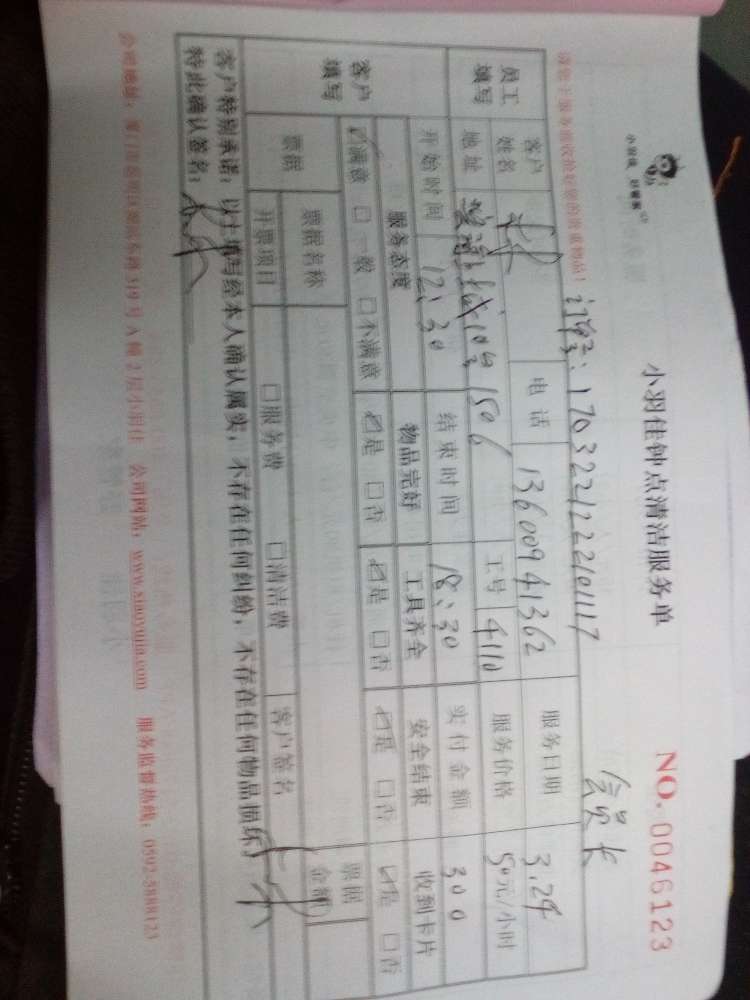 小羽佳 好管家
小羽佳钟点清洁服务单
NO. 0046123
会员卡
请您于服务前收拾好您的贵重物品！ 订单号：1703221222101117
员工填写 客户姓名 电话 13600941362 服务日期 3.24
地址 1506 工号 4110 服务价格 50元/小时
开始时间 12:30 结束时间 18:30 实付金额 300
客户填写 服务态度 物品完好 工具齐全 安全结束 收到卡片
☑满意 □一般 □不满意 ☑是 □否 ☑是 □否 ☑是 □否 ☑是 □否
票据 票据名称 票据金额
开票项目 □服务费 □清洁费 客户签名
客户特别承诺：以上填写经本人确认属实，不存在任何纠纷，不存在任何物品损坏，
特此确认签名：
公司地址： 319号A幢2层小羽佳 公司网站：www.xiaoyujia.com 服务监督热线：0592-5888123